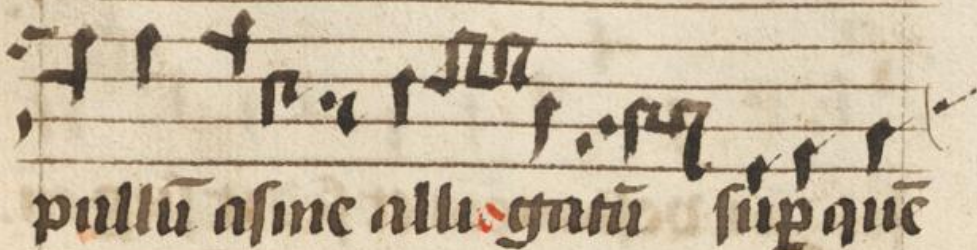 pullū asine alligatū sup̲ quē